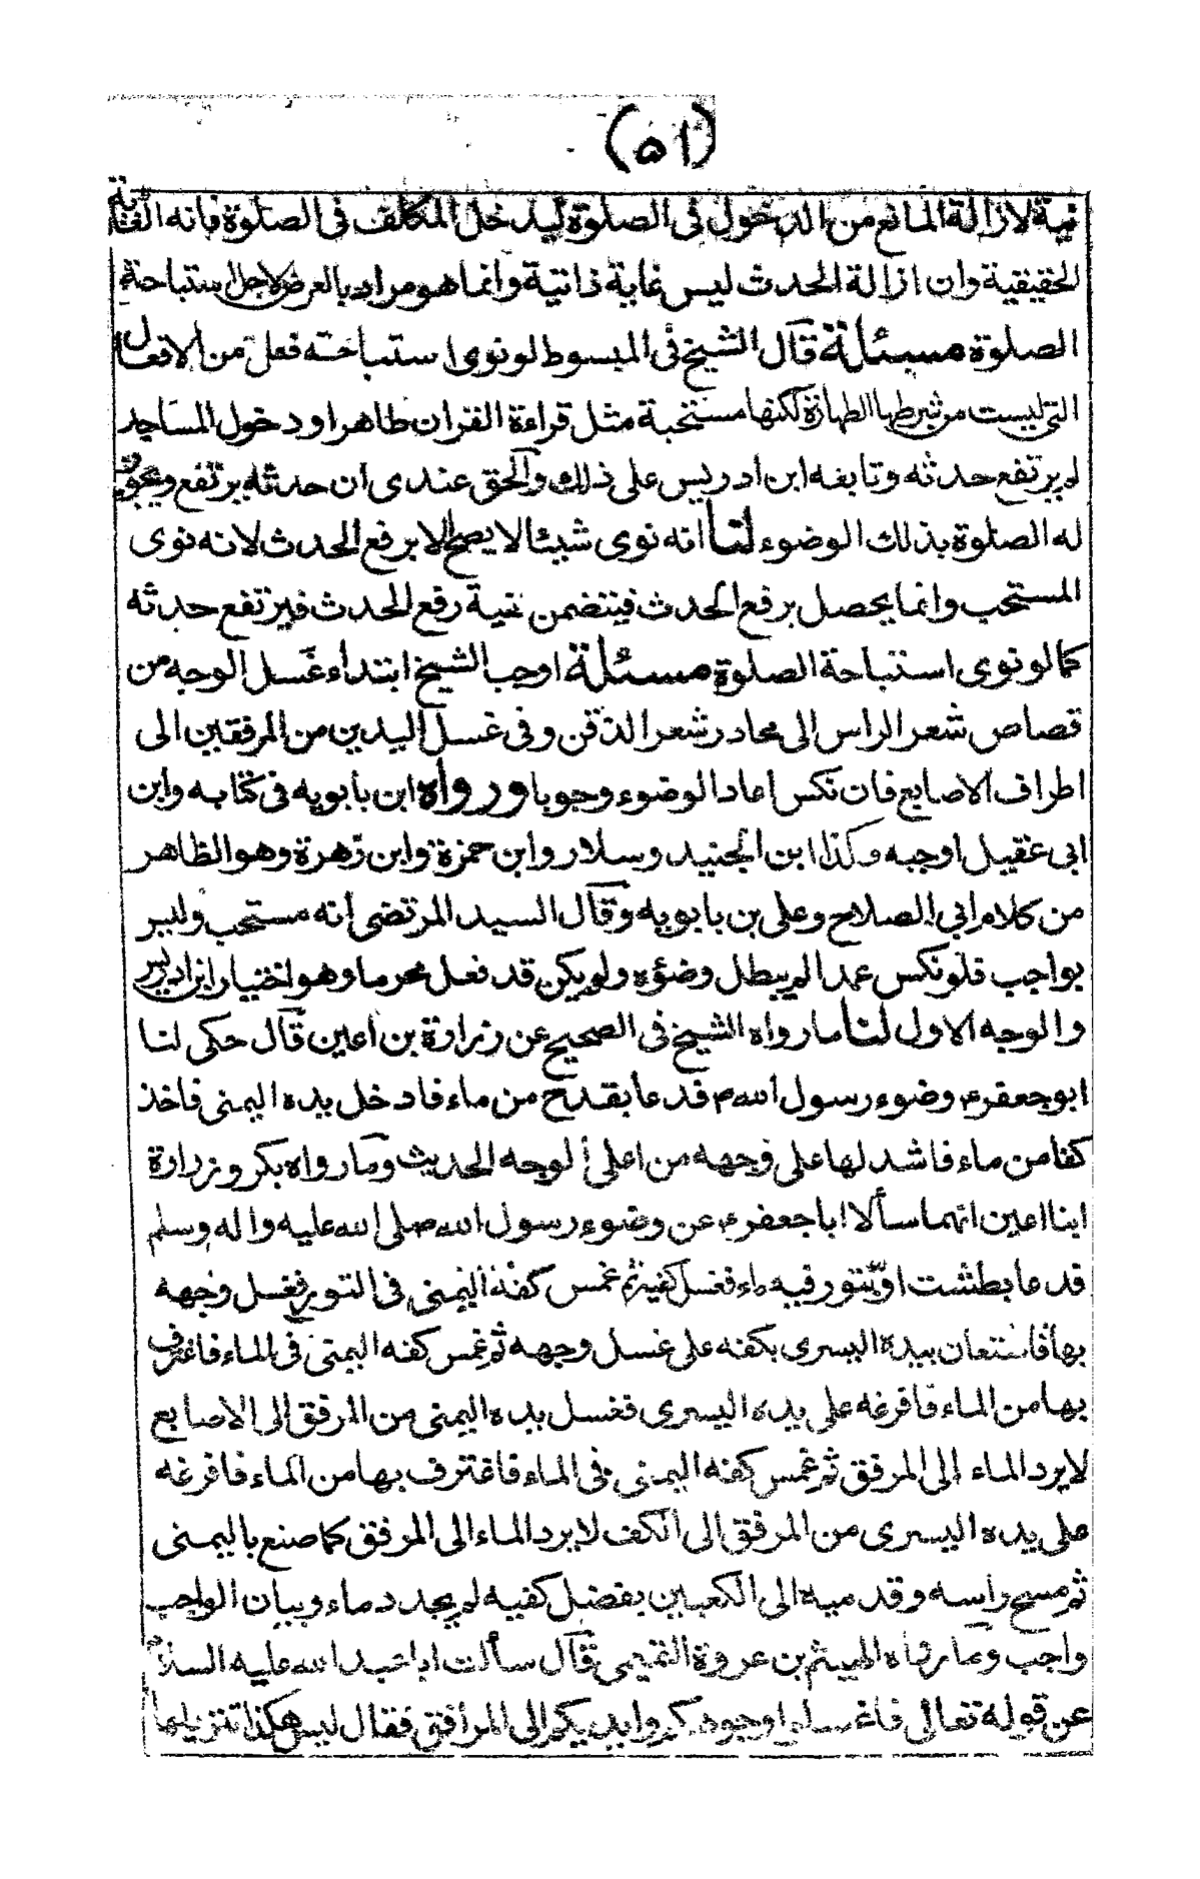 (٥١)
نية لازالة المانع من الدخول فى الصلوة ليدخل المكلف فى الصلوة فانه الغاية
الحقيقية وان ازالة الحدث ليس غاية ذاتية وانما هو مراد بالعرض لاجل استباحة
الصلوة مسئلة قال الشيخ فى المبسوط لو نوى استباحة فعل من الافعال
التى ليست من شرطها الطهارة لكنها مستحبة مثل قراءة القران طاهرا و دخول المساجد
لم يرتفع حدثه وتابعه ابن ادريس على ذلك والحق عندى ان حدثه يرتفع ويجوز
له الصلوة بذلك الوضوء لنا انه نوى شيئا لا يصح الا برفع الحدث لانه نوى
المستحب وانما يحصل برفع الحدث فيتضمن نية رفع الحدث فيرتفع حدثه
كما لو نوى استباحة الصلوة مسئلة اوجب الشيخ ابتداء غسل الوجه من
قصاص شعر الراس الى محادر شعر الذقن وفى غسل اليدين من المرفقين الى
اطراف الاصابع فان نكس اعاد الوضوء وجوبا ورواه ابن بابويه فى كتابه وابن
ابى عقيل اوجبه وكذا ابن الجنيد وسلار وابن حمزة وابن زهرة وهو الظاهر
من كلام ابى الصلاح وعلى بن بابويه وقال السيد المرتضى انه مستحب وليس
بواجب فلو نكس عمدا لم يبطل وضوؤه ولم يكن قد فعل محرما وهو اختيار ابن ادريس
والوجه الاول لنا مارواه الشيخ فى الصحيح عن زرارة بن اعين قال حكى لنا
ابو جعفر ع وضوء رسول الله ص فدعا بقدح من ماء فادخل يده اليمنى فاخذ
كفا من ماء فاسدلها على وجهه من اعلى الوجه الحديث ومارواه بكر و زرارة
ابنا اعين انهما سألا ابا جعفر ع عن وضوء رسول الله صلى الله عليه واله وسلم
قدعا بطشت او بتور فيه ماء فغسل كفيه ثم غمس كفه اليمنى فى التور فغسل وجهه
بها فاستعان بيده اليسرى بكفه على غسل وجهه ثم غمس كفه اليمنى فى الماء فاغترف
بها من الماء فافرغه على يده اليسرى فغسل يده اليمنى من المرفق الى الاصابع
لا يرد الماء الى المرفق ثم غمس كفه اليمنى فى الماء فاغترف بها من الماء فافرغه
على يده اليسرى من المرفق الى الكف لا يرد الماء الى المرفق كما صنع باليمنى
ثم مسح راسه وقدميه الى الكعبين بفضل كفيه لم يجدد ماء وبيان الواجب
واجب وما رواه الهيثم بن عروة التميمى قال سألت ابا عبد الله عليه السلام
عن قوله تعالى فاغسلوا وجوهكم وايديكم الى المرافق فقال ليس هكذا تنزيلها